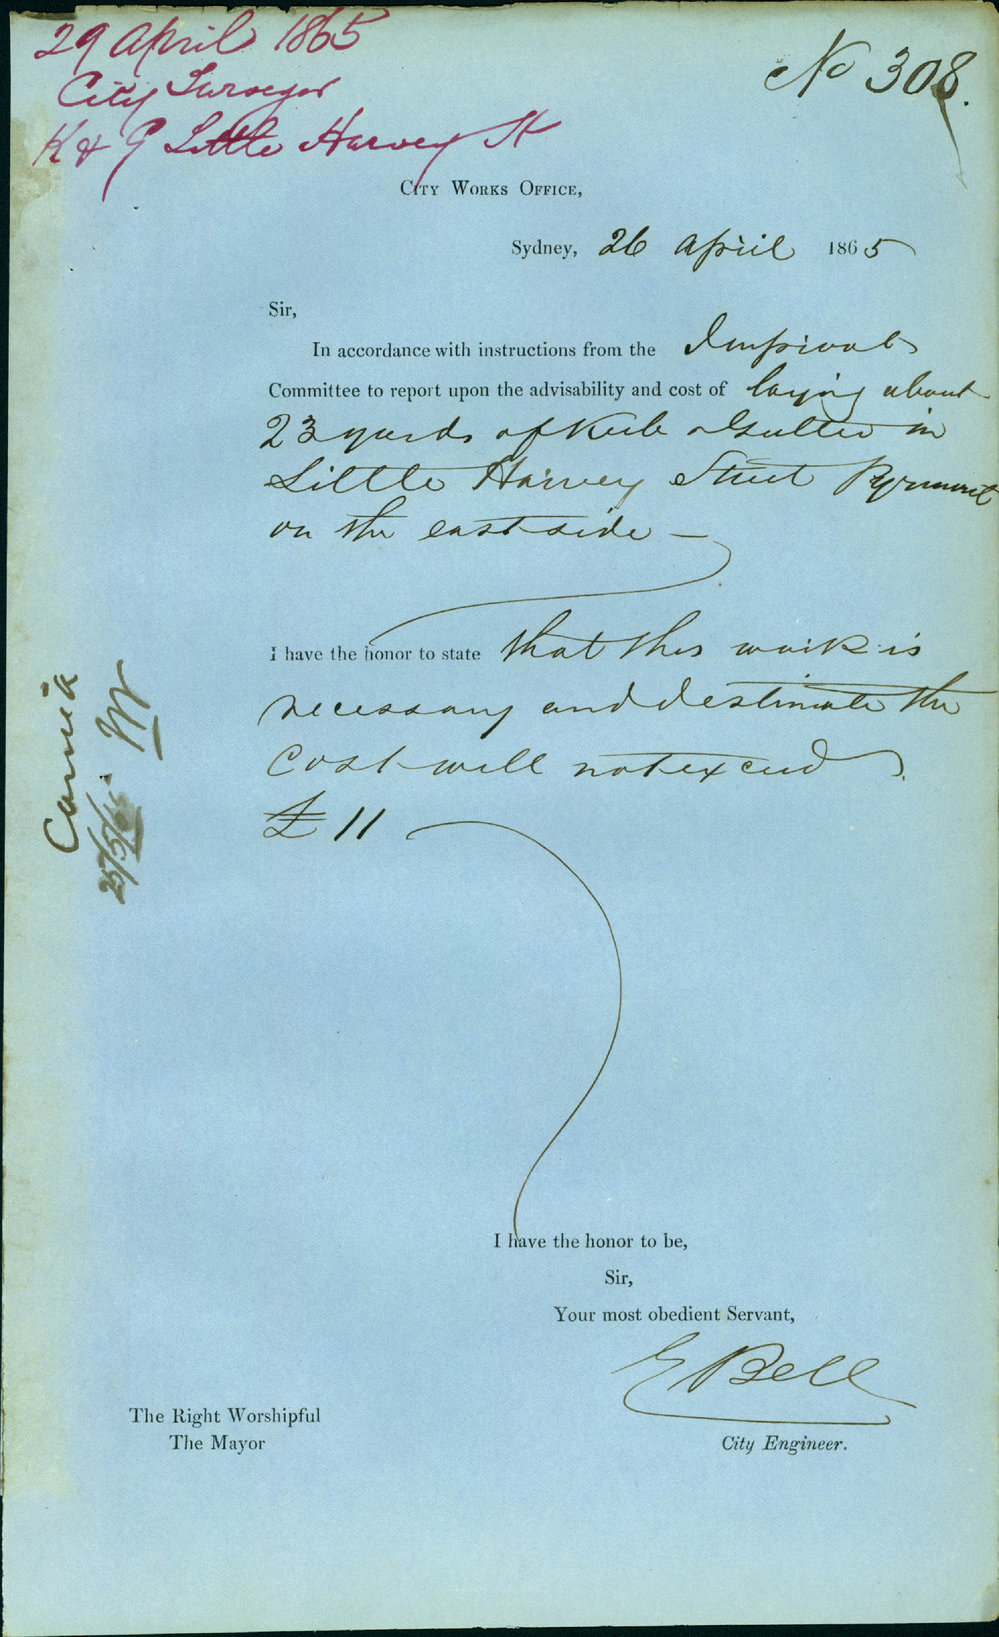 29 April 1865
City Surveyor
K & G Little Harvey St
No 308.
City Works Office,
Sydney, 26 April 1865
Sir,
In accordance with instructions from the Improvt
Committee to report upon the advisability and cost of laying about
23 yards of Kerb & Gutter in
Little Harvey Street Pyrmont
on the east side —
I have the honor to state that this work is
necessary and I estimate the
cost will not exceed
£11
25/5/65
I have the honor to be,
Sir,
Your most obedient Servant,
E Bell
City Engineer.
The Right Worshipful
The Mayor